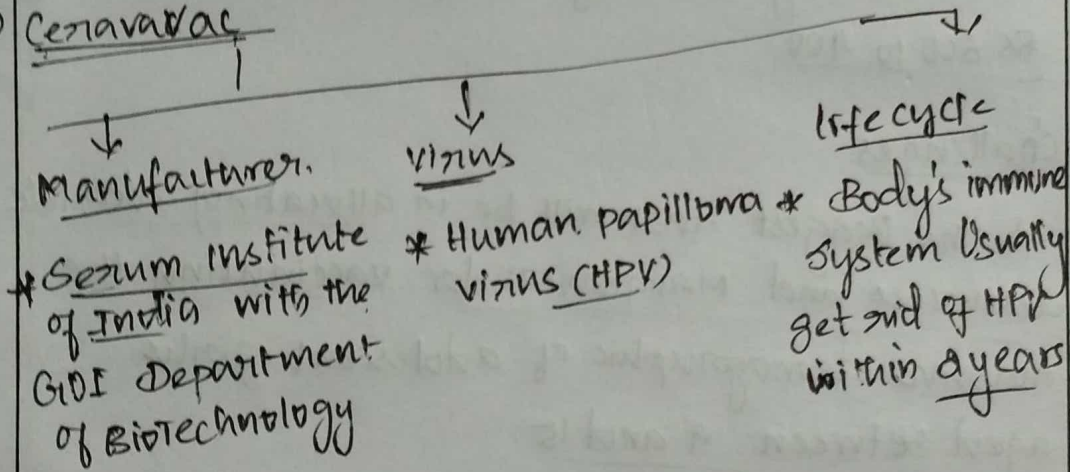 Cervavac
Manufacturer.
* Serum Institute
of India with the
GOI Department
of BioTechnology
Virus
* Human papilloma
virus (HPV)
lifecycle
* Body's immune
System Usually
get rid of HPV
within 2 years